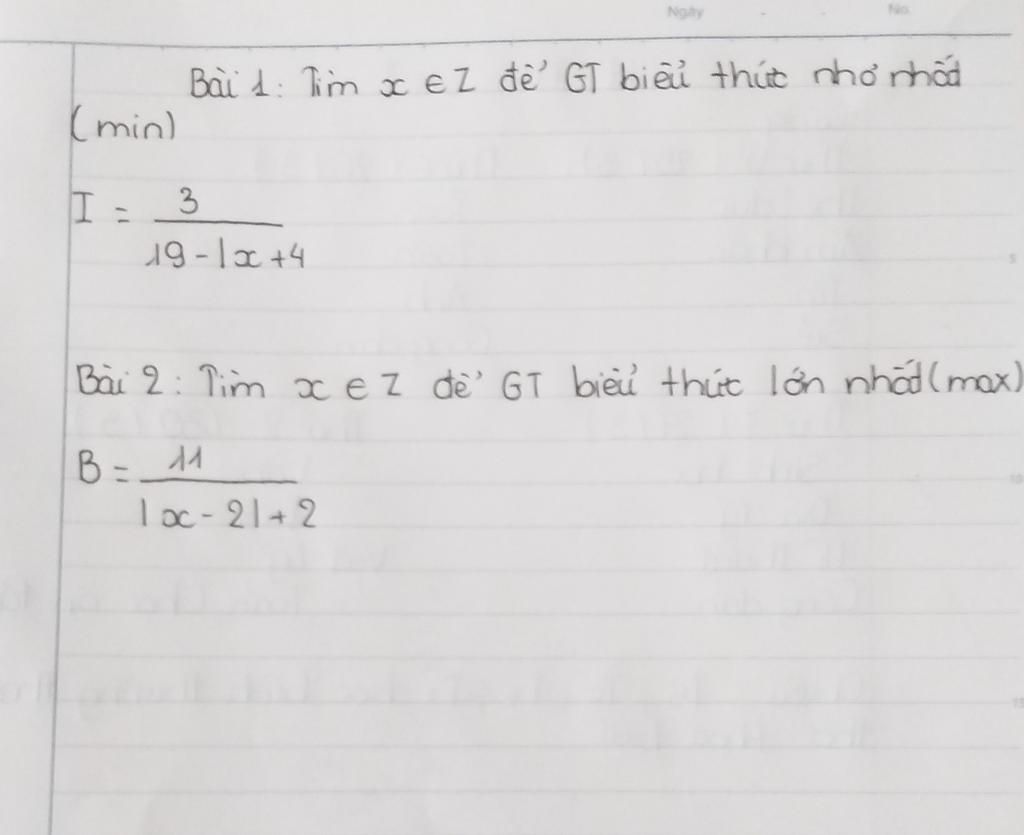 Ngày . . No.
Bài 1: Tìm x ∈ Z để GT biểu thức nhơ nhất
(min)
I = 3 / 19 - |x + 4
5
Bài 2: Tìm x ∈ Z để GT biểu thức lớn nhất (max)
B = 11 / |x - 2| + 2
10
15